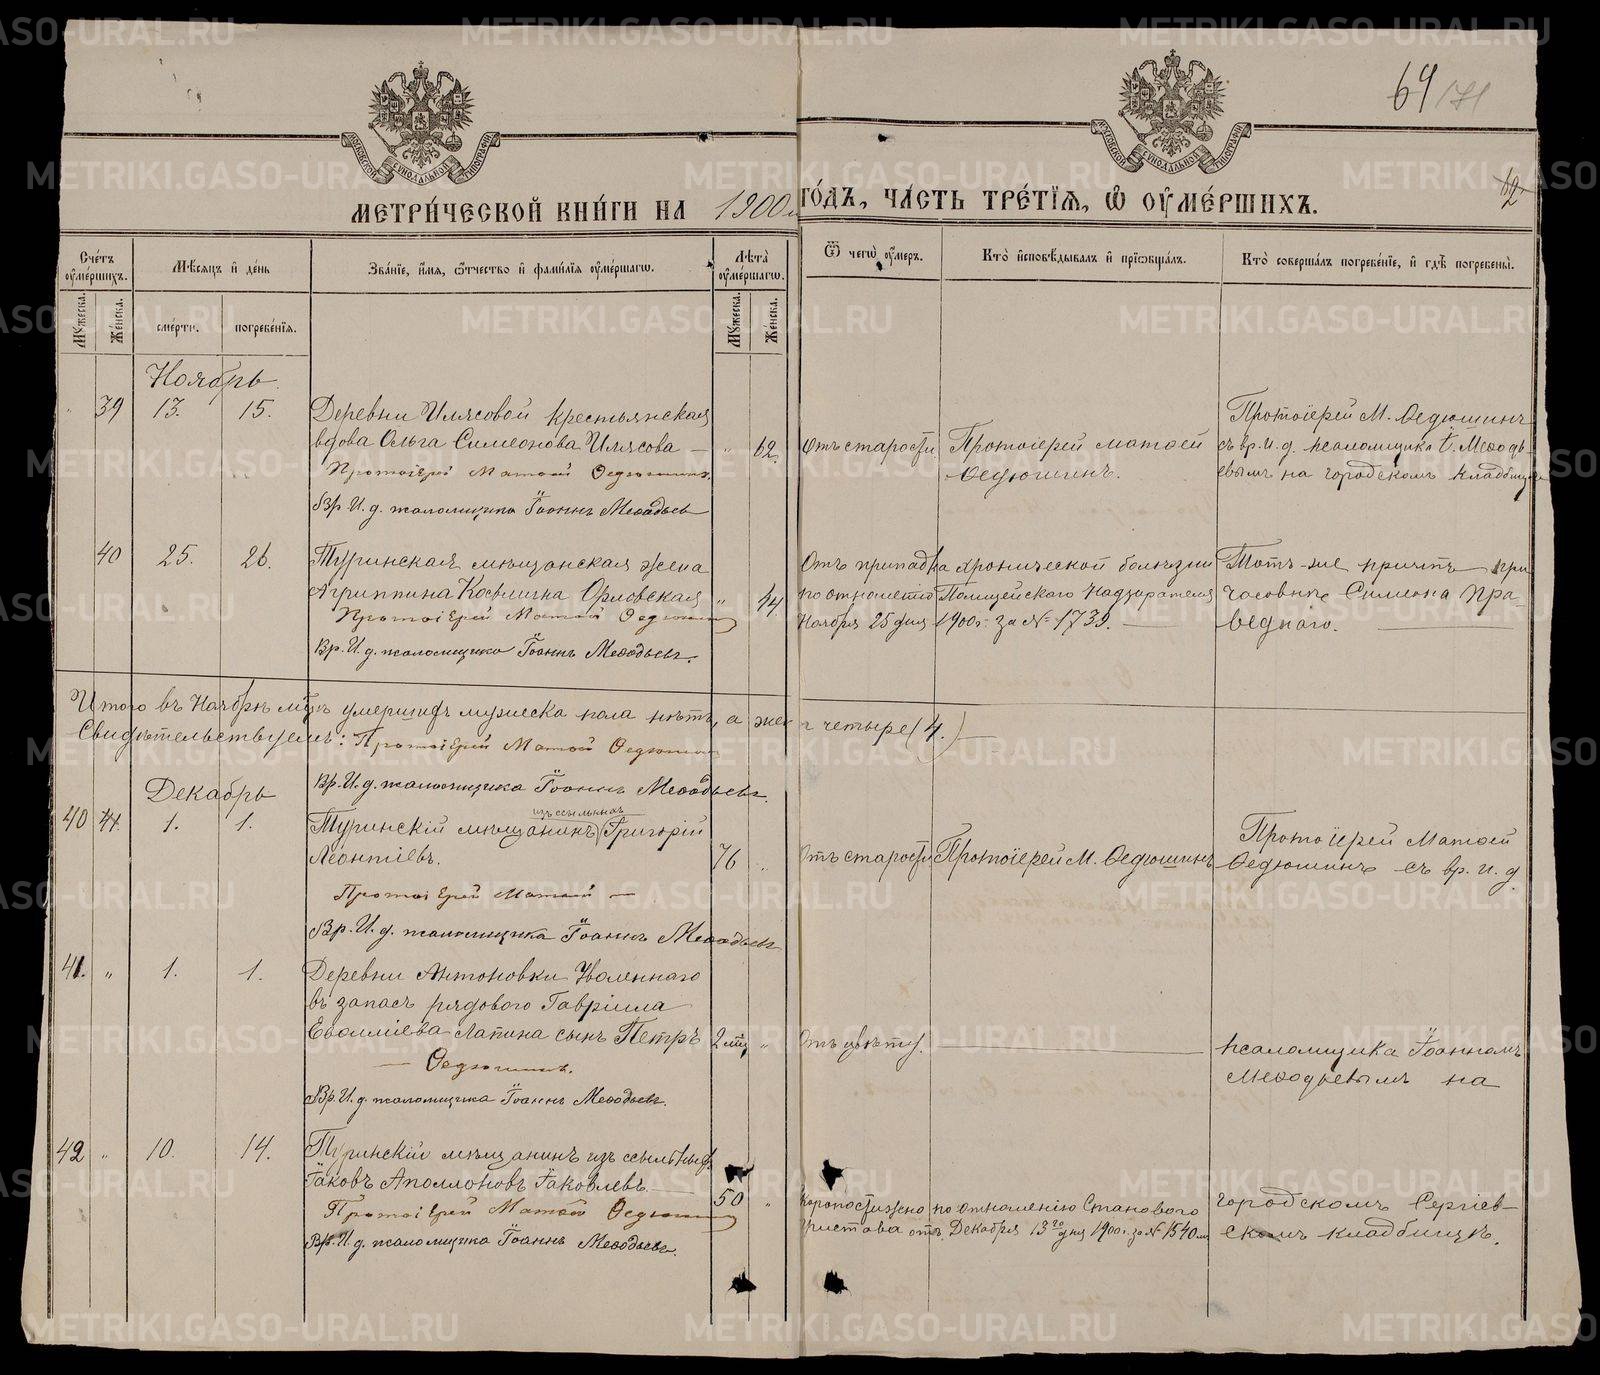 69 171
62
МЕТРИЧЕСКОЙ КНИГИ НА 1900 й ГОДЪ, ЧАСТЬ ТРЕТІЯ, Ѿ ОУМЕРШИХЪ.
Счетъ оумершихъ.
Мѣсяцъ и день
Званіе, имя, ѿтчество и фамилія оумершагѡ.
Лѣта оумершагѡ.
Ѿ чегѡ оумеръ.
Кто исповѣдывалъ и пріѡбщалъ.
Кто совершалъ погребеніе, и гдѣ погребены.
Мужеска.
Женска.
смерти.
погребенія.
Мужеска.
Женска.
Ноябрь.
" 39 13. 15.
Деревни Илясовой крестьянская
вдова Ольга Симеонова Илясова —
Протоіерей Матѳей Ѳедюшинъ.
Вр. И. д. псаломщика Іоаннъ Меѳодьев
" 62.
Отъ старости.
Протоіерей Матѳей
Ѳедюшинъ.
Протоіерей М. Ѳедюшинъ
съ вр. и. д. псаломщика І. Меѳодь-
евымъ на городскомъ кладбищѣ
40 25. 26.
Туринская мѣщанская жена
Агриппина Косьмина Орловская
Протоіерей Матѳей Ѳедюшинъ
Вр. И. д. псаломщика Іоаннъ Меѳодьевъ.
" 44.
Отъ припадка хронической болѣзни
по отношенію Полицейскаго Надзирателя
Ноября 25 дня 1900 г. за № 1739.
Тотъ-же причтъ при
часовнѣ Симеона Пра-
веднаго.
Итого въ Ноябрѣ мцѣ умершихъ мужеска пола нѣтъ, а жен четыре (4.)
Свидѣтельствуемъ: Протоіерей Матѳей Ѳедюшин
Вр. И. д. псаломщика Іоаннъ Меѳодьевъ.
Декабрь
40 41. 1. 1.
изъ ссыльных
Туринскій мѣщанинъ Григорій
Леонтіевъ.
Протоіерей Матѳей —
Вр. И. д. псаломщика Іоаннъ Меѳодьевъ
76 "
Отъ старости
Протоіерей М. Ѳедюшинъ
Протоіерей Матѳей
Ѳедюшинъ съ вр. и. д.
41. " 1. 1.
Деревни Антоновки Уволеннаго
въ запасъ рядового Гавріила
Евѳиміева Лапина сынъ Петръ
— Ѳедюшинъ.
Вр. И. д. псаломщика Іоаннъ Меѳодьевъ.
2 мц "
псаломщика Іоанномъ
Меѳодьевымъ на
42 " 10. 14.
Туринскій мѣщанинъ изъ ссыльных
Іаковъ Аполлоновъ Іаковлевъ
Протоіерей Матѳей Ѳедюшин
Вр. И. д. псаломщика Іоаннъ Меѳодьевъ.
50 "
Скоропостижно по отношенію Станового
Пристава отъ Декабря 13 го дня 1900 г. за № 1540
городскомъ Сергіев-
скомъ кладбищѣ.